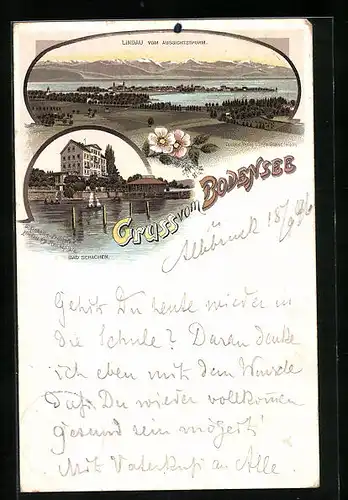 LINDAU VOM AUSSICHTSTURM.
GRUSS VOM BODENSEE
BAD SCHACHEN.
Gehst Du heute wieder in
die Schule? Daran denke
ich eben mit dem Wunsche
daß Du wieder vollkommen
gesund sein mögest!
Mit Vaterkuß an Alle.